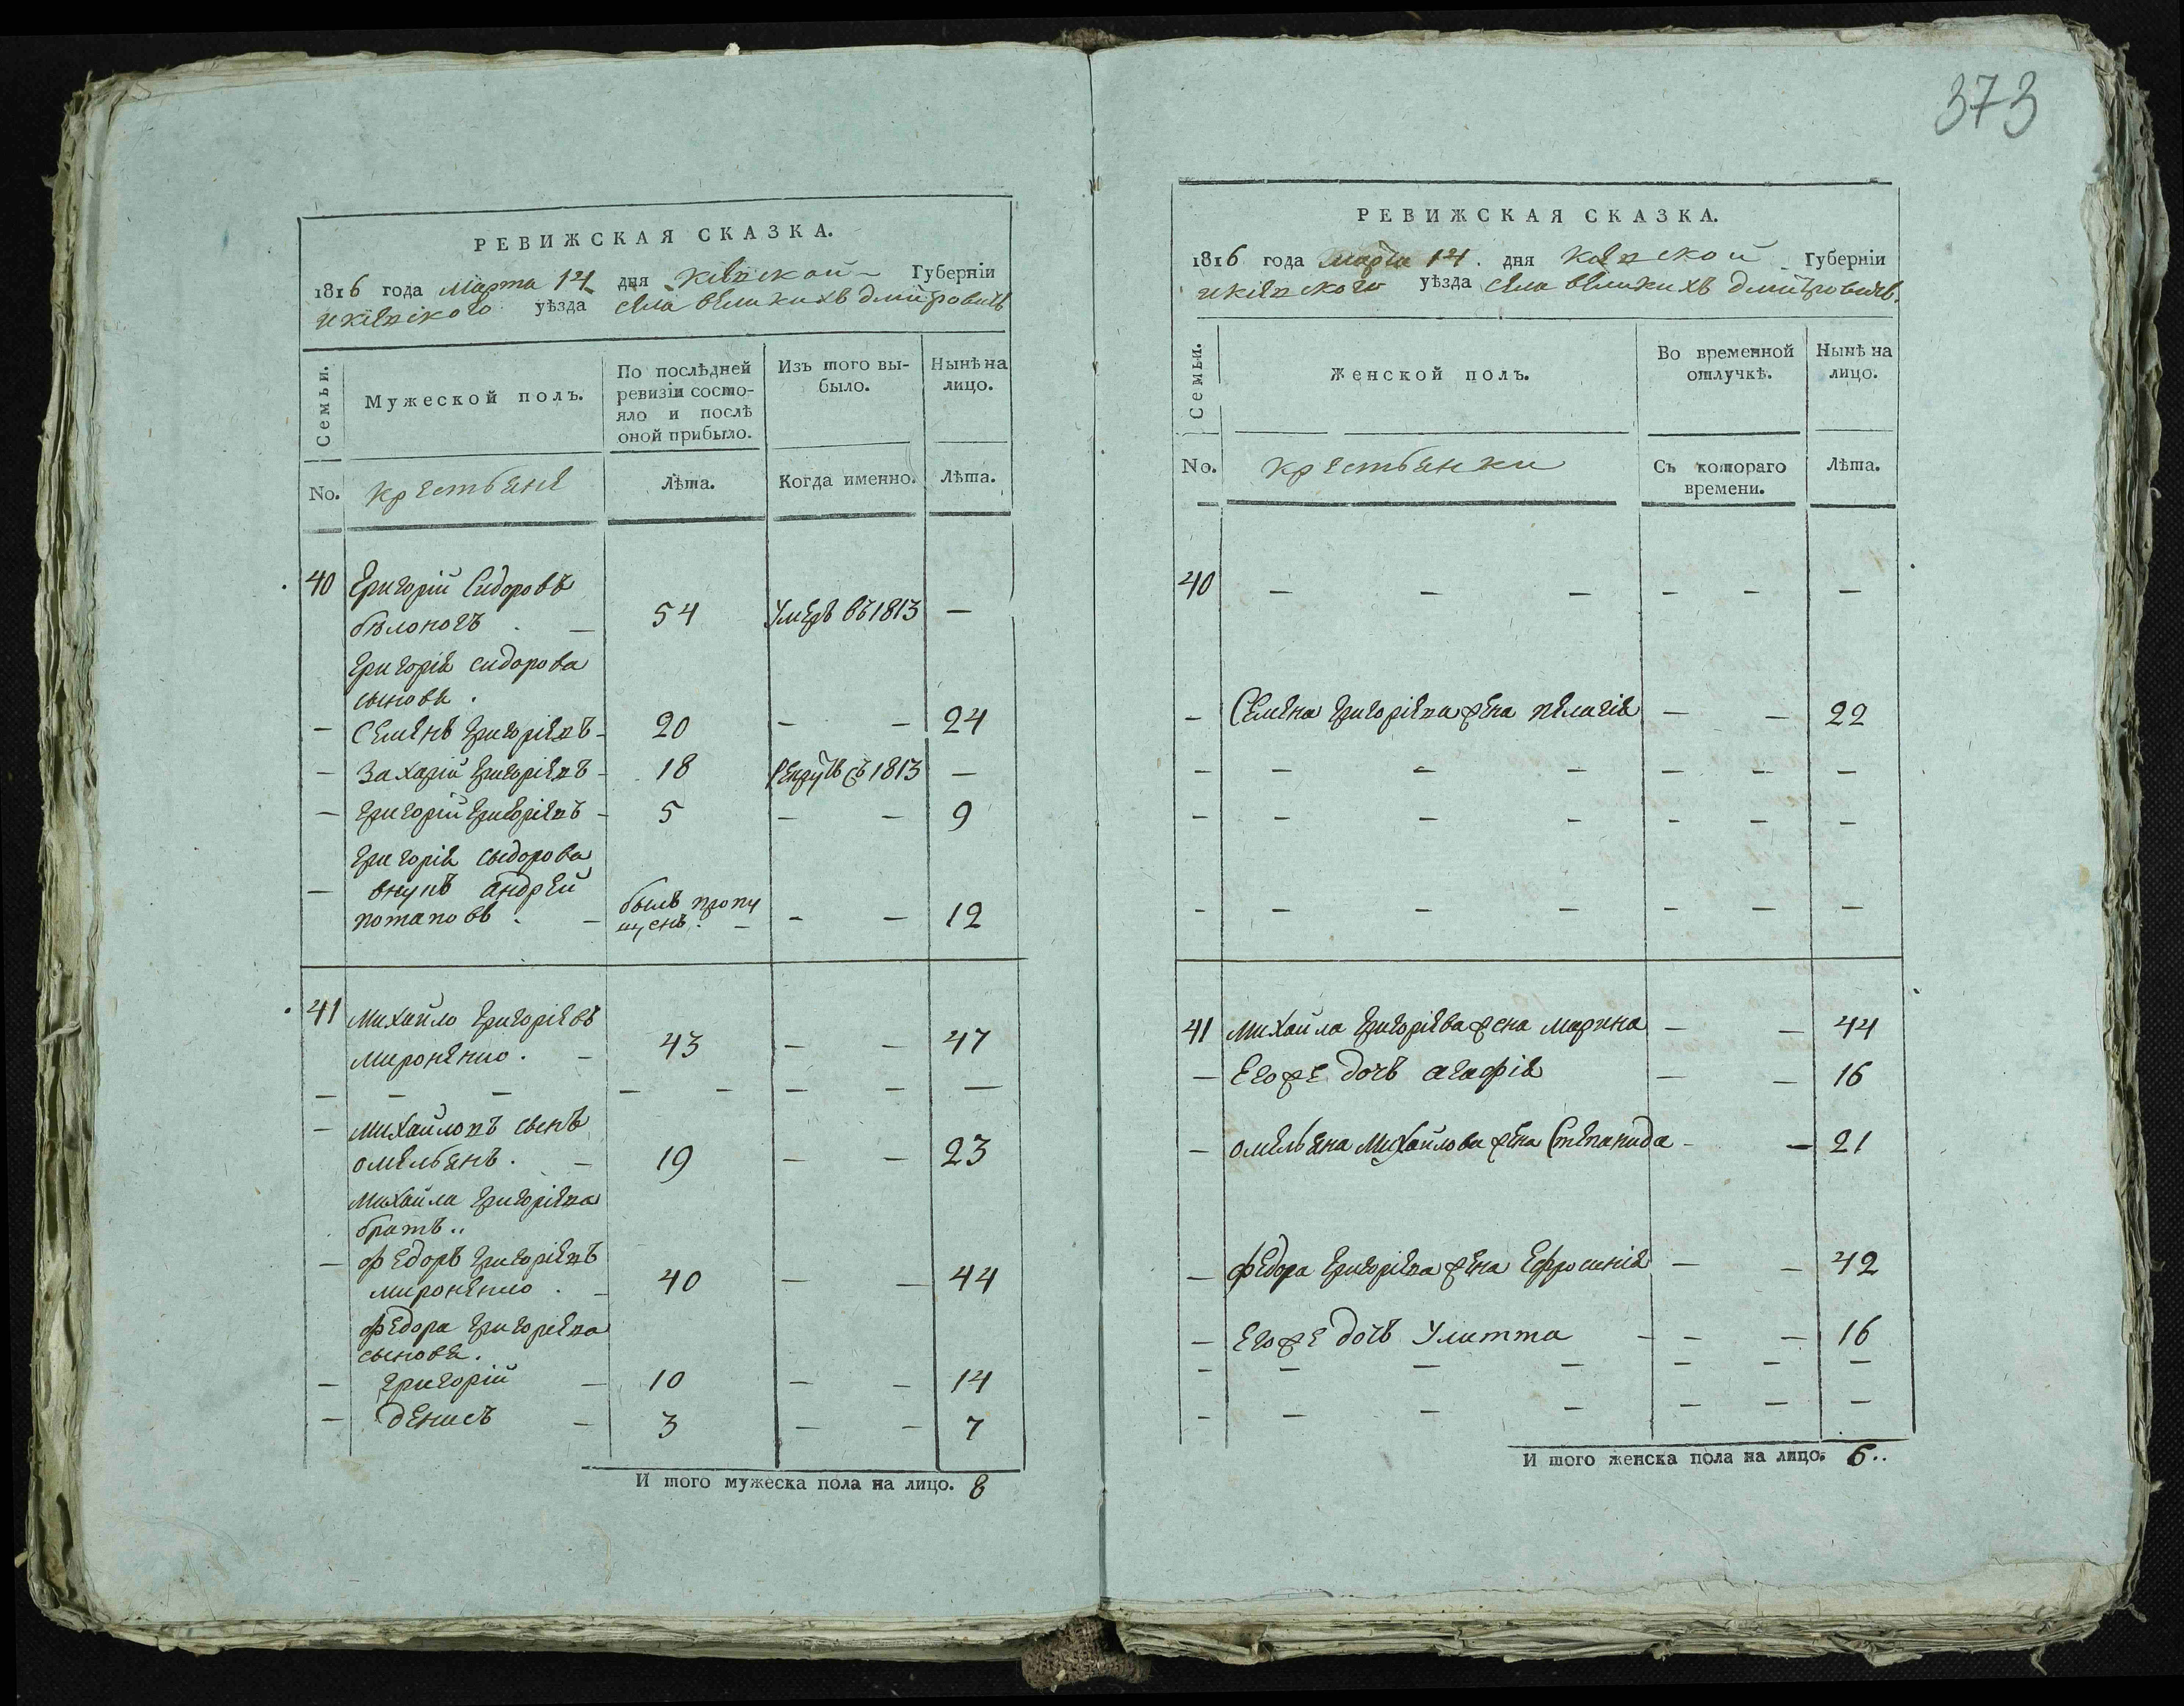 373
РЕВИЖСКАЯ СКАЗКА.
1816 года Марта 14 дня Кіевской Губерніи
и Кіевского уѣзда села великихъ дмитровичъ
Семьи.
Мужеской полъ.
По послѣдней ревизіи состо-
яло и послѣ
оной прибыло.
Изъ того вы-
было.
Нынѣ на
лицо.
No.
крестьяне
Лѣта.
Когда именно.
Лѣта.
40 Григорій Сидоровъ
бѣлоногъ . — 54 Умеръ въ 1813 —
Григорія сидорова
сыновя .
— Семенъ Григоріевъ — 20 — — 24
— Захарій Григоріевъ — 18 Рекрутъ съ 1813 —
— Григорій Григоріевъ — 5 — — 9
Григорія сыдорова
— внукъ андрей
потаповъ . — былъ пропу
щенъ . — — — 12
41 Михайло Григоріевъ
мироненко . — 43 — — 47
— — — — — — — —
— Михайловъ сынъ
омельянъ . — 19 — — 23
Михайла Григоріева
братъ ..
— федоръ Григоріевъ
мироненко . — 40 — — 44
федора Григорева
сыновя .
— Григорій — 10 — — 14
— денисъ — 3 — — 7
И того мужеска пола на лицо. 8
РЕВИЖСКАЯ СКАЗКА.
1816 года Марта 14 . дня Кіевской Губерніи
и Кіевского уѣзда села великихъ дмитровичъ.
Семьи.
Женской полъ.
Во временной
отлучкѣ.
Нынѣ на
лицо.
No.
крестьянки
Съ котораго
времени.
Лѣта.
40 — — — — — —
— Семена Григоріева жена пелагія — — 22
— — — — — — —
— — — — — — —
— — — — — — —
41 Михайла Григоріева жена марина — — 44
— Егоже дочъ агафія — — 16
— омельяна Михайлова жена Степанида — — 21
— федора Григоріева жена Ефросинія — — 42
— Егоже дочъ Улитта — — — 16
— — — — — — —
— — — — — — —
И того женска пола на лицо. 6..